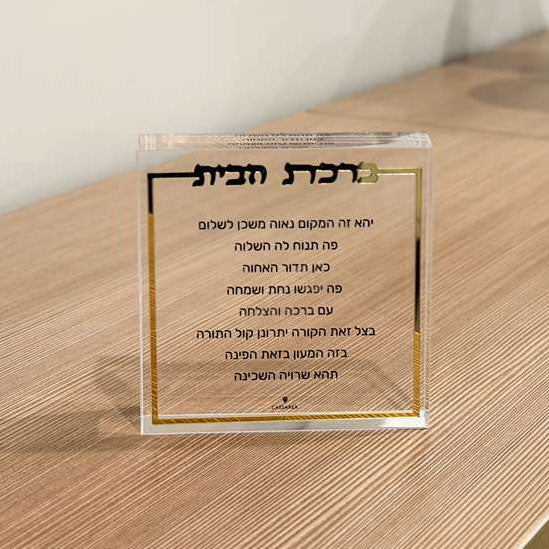 ברכת הבית
יהא זה המקום נאוה משכן לשלום
פה תנוח לה השלוה
כאן תדור האחוה
פה יפגשו נחת ושמחה
עם ברכה והצלחה
בצל זאת הקורה יתרונן קול התורה
בזה המעון בזאת הפינה
תהא שרויה השכינה
CAESAREA